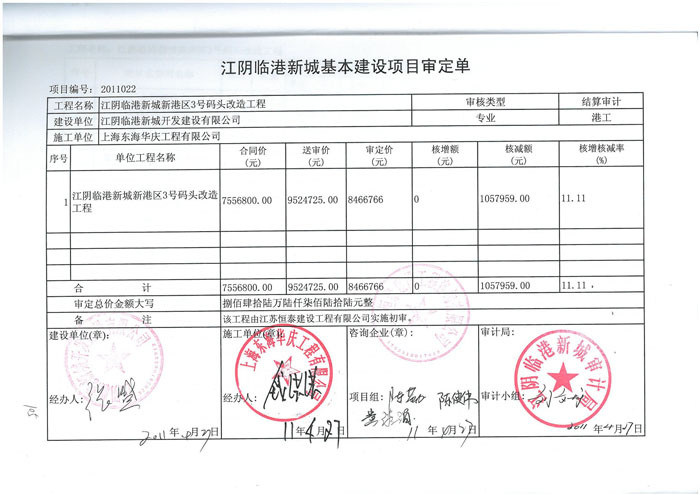 江阴临港新城基本建设项目审定单
项目编号: 2011022
工程名称 江阴临港新城新港区3号码头改造工程 审核类型 结算审计
建设单位 江阴临港新城开发建设有限公司 专业 港工
施工单位 上海东海华庆工程有限公司
序号 单位工程名称 合同价(元) 送审价(元) 审定价(元) 核增额(元) 核减额(元) 核增核减率(%)
1 江阴临港新城新港区3号码头改造工程 7556800.00 9524725.00 8466766 0 1057959.00 11.11
合 计 7556800.00 9524725.00 8466766 0 1057959.00 11.11
审定总价金额大写 捌佰肆拾陆万陆仟柒佰陆拾陆元整
备 注 该工程由江苏恒泰建设工程有限公司实施初审。
建设单位(章): 施工单位(章): 咨询企业(章): 审计局:
上海东海华庆工程有限公司
江阴临港新城审计局
经办人: 经办人: 项目组: 审计小组:
2011年4月27日 11年4月27日 11年 月 日 2011年4月27日